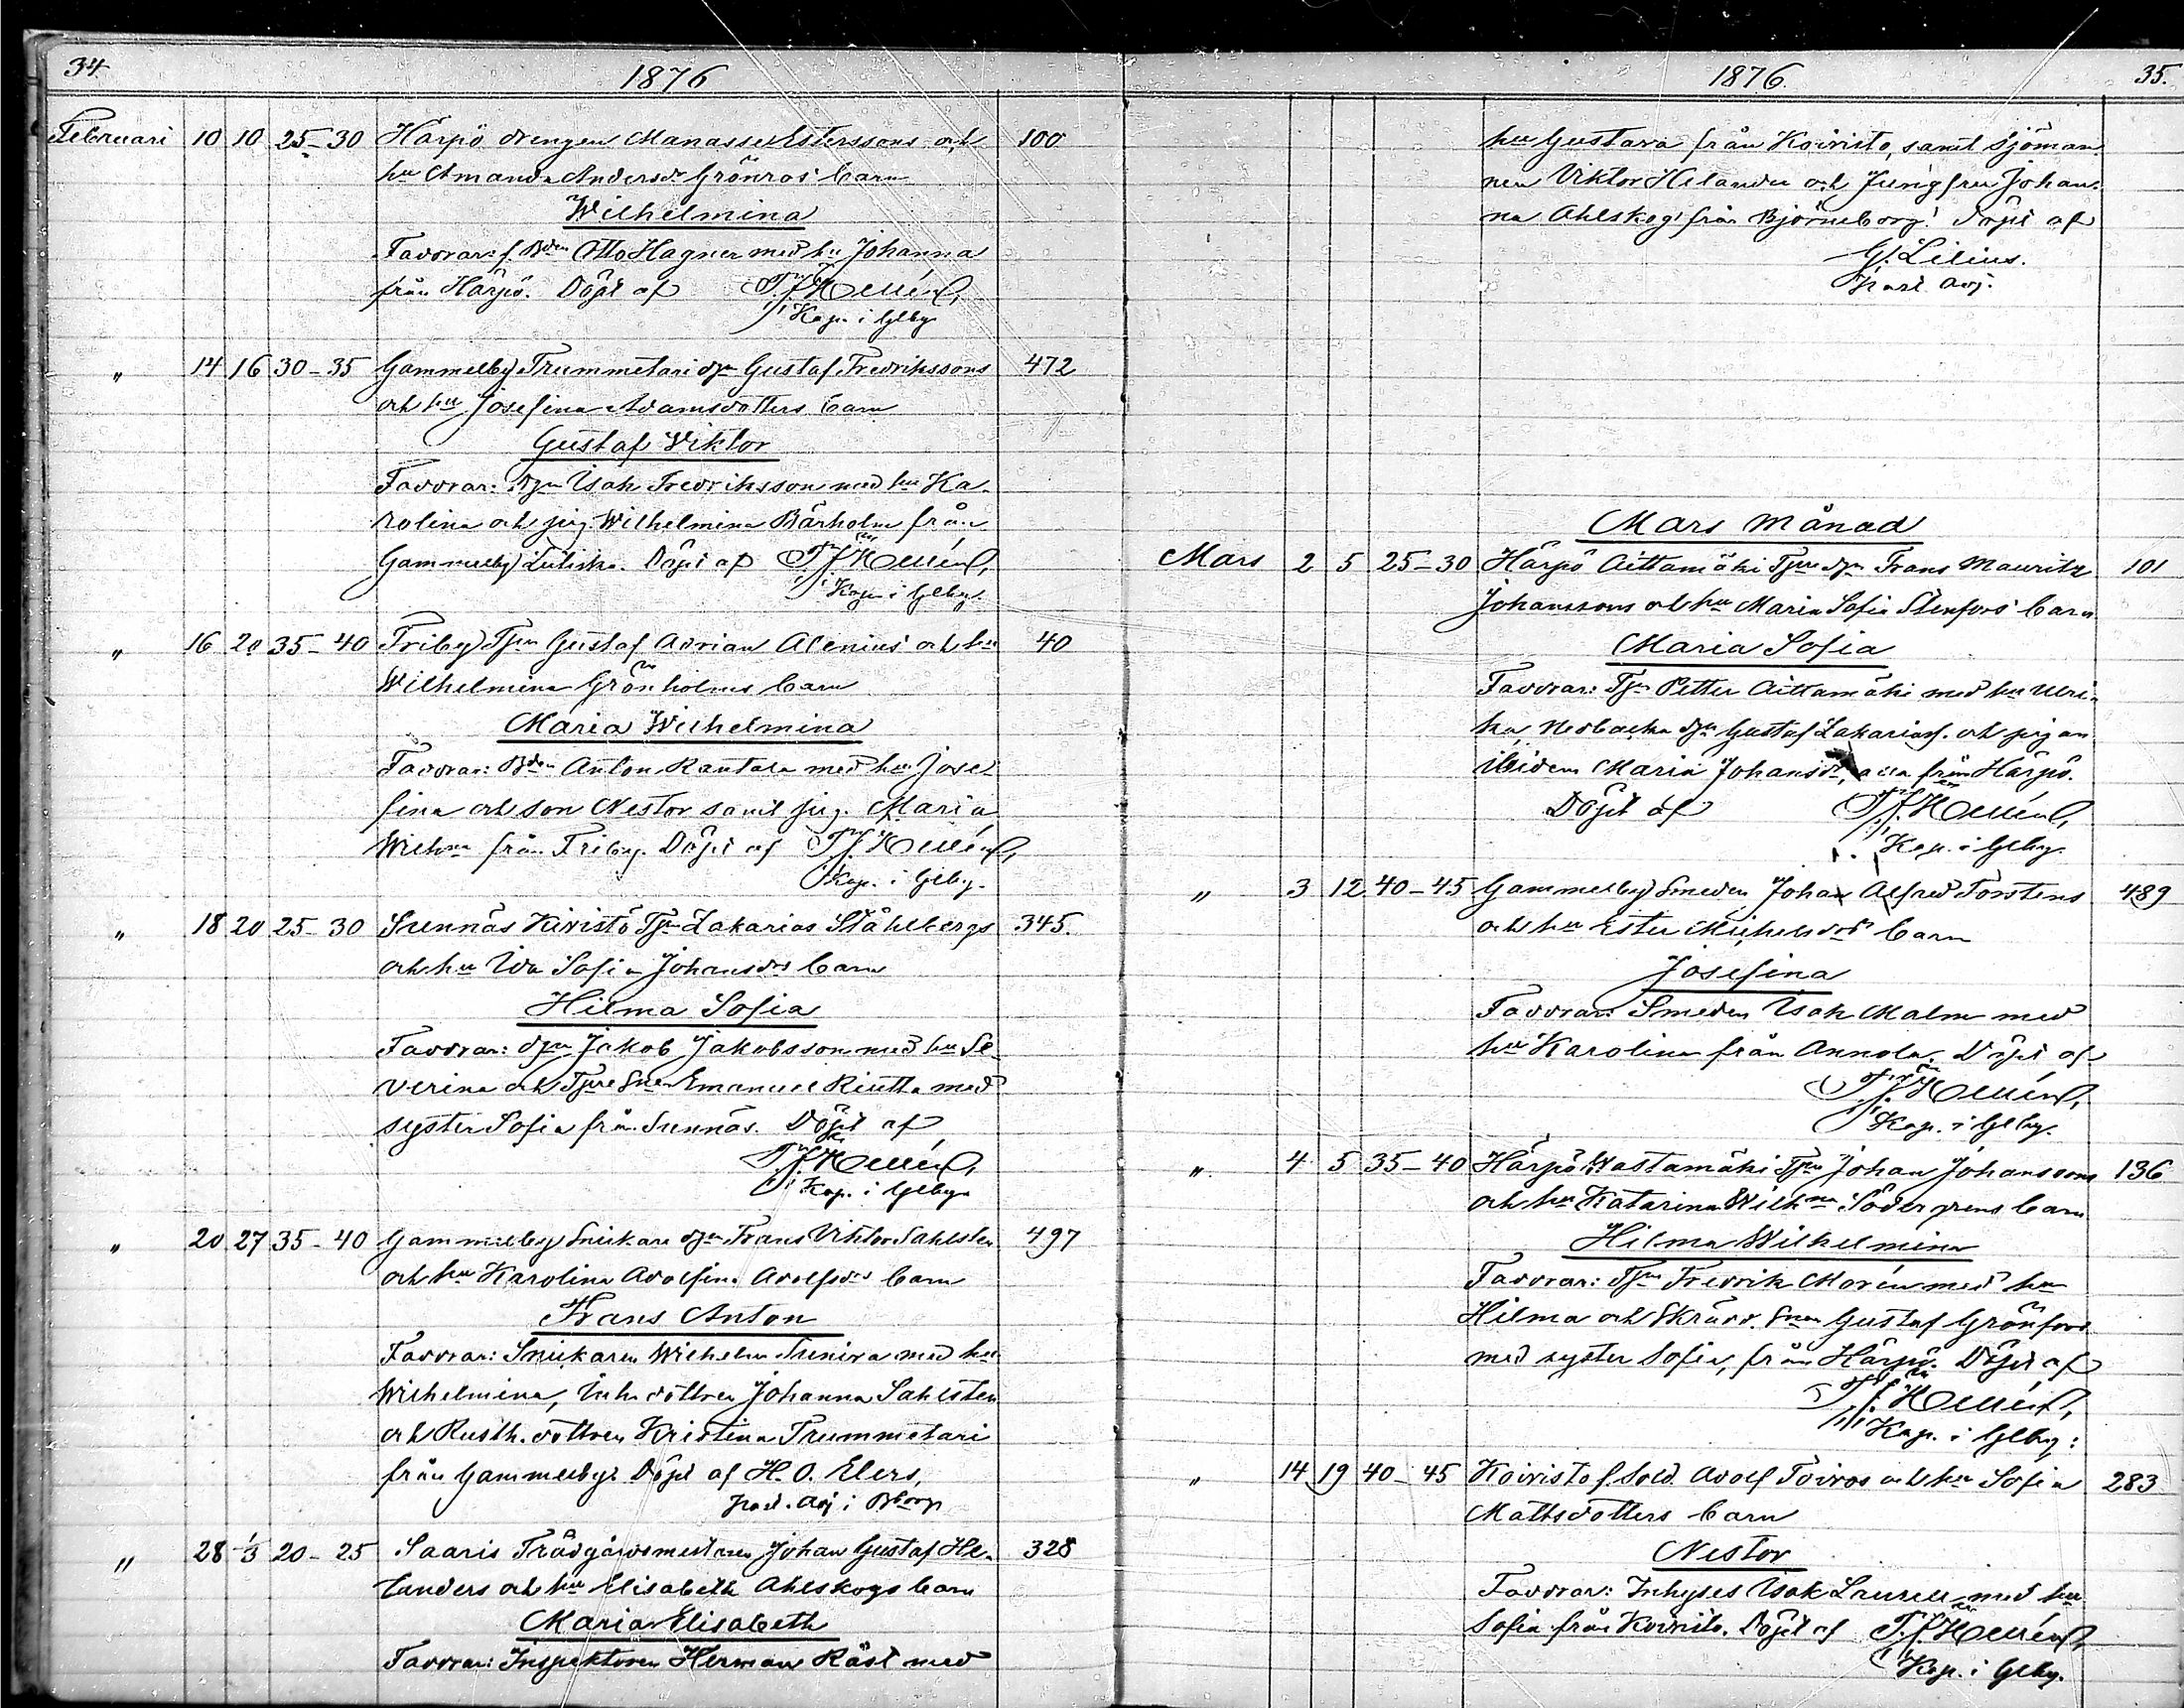 34.
1876
Februari 10 10 25-30 Härpö drengen Manasse Esterssons och 100
hu Amanda Andersdr Grönros' barn
Wilhelmina
Faddrar: f. Bden Otto Hagner med hu Johanna
från Härpö. Döpt af
Kap. i Glby
" 14 16 30-35 Gammelby Trummetari dgn Gustaf Fredrikssons 472
och hu Josefina Adamsdotters barn
Gustaf Viktor
Faddrar: dgn Isak Fredriksson med hu Ka-
rolina och pig. Wilhelmina Bärholm från
Gammelby Döpt af
Kap. i Glby.
" 16 20 35-40 Friby Tpn Gustaf Adrian Alenius' och hu 40
Wilhelmina Grönholms barn
Maria Wilhelmina
Faddrar: Bden Anton Rantala med hu Jose-
fina och son Nestor samt pig. Maria
Wilhna från Friby. Döpt af
Kap. i Glby.
" 18 20 25-30 Sunnäs Kivistö Tpn Zakarias Ståhlbergs 345.
och hu Ida Sofia Johansdrs barn
Hilma Sofia
Faddrar: dgn Jakob Jakobsson med hu Se-
verina och Tpre Snen Emanuel Riutta med
syster Sofia från Sunnäs. Döpt af
Kap. i Glby.
" 20 27 35-40 Gammelby Snickare dgn Frans Viktor Sahlsten 497
och hu Karolina Adolfina Adolfsdrs barn
Frans Anton
Faddrar: Snickaren Wilhelm med hu
Wilhelmina, Inh. dottren Johanna Sahlsten
och Rusth. dottren Kristina Trummetari
från Gammelby. Döpt af H. O. Elers,
past. adj i Bborg
" 28 1/3 20-25 Saaris Trädgårdsmästaren Johan Gustaf He- 328
landers och hu Elisabeth Ahlskogs barn
Maria Elisabeth
Faddrar: Inspektoren Herman Räst med
1876.
35.
hu Gustava från Koivisto, samt Sjöman-
nen Viktor Helander och Jungfru Johan-
na Ahlskog från Björneborg. Döpt af
G. Lilius.
past. adj.
Mars månad
Mars 2 5 25-30 Härpö Aittamäki Tpre dgn Frans Mauritz 101
Johanssons och hu Maria Sofia Stenfors' barn
Maria Sofia
Faddrar: Tpn Petter Aittamäki med hu Ulri-
ka, Nedbacka dgn Gustaf Zakariasf. och pigan
ibidem Maria Johansdr, alla från Härpö.
Döpt af
Kap. i Glby.
" 3 12 40-45 Gammelby Smeden Johan Alfred Torstens 489
och hu Ester Michelsdrs barn
Josefina
Faddrar: Smeden Isak Malm med
hu Karolina från Annola. Döpt af
Kap. i Glby.
" 4 5 35-40 Härpö Wastamäki Tpn Johan Johanssons 136
och hu Katarina Wilhna Södergrens barn
Hilma Wilhelmina
Faddrar: Tpn Fredrik Morén med hu
Hilma och Skrädd. Snen Gustaf Grönfors
med syster Sofia, från Härpö. Döpt af
Kap. i Glby:
" 14 19 40-45 Koivisto f. Sold. Adolf Toivos och hu Sofia 283
Mattsdotters barn
Nestor
Faddrar: Inhyses Isak Laurell med hu
Sofia från Koivisto. Döpt af
Kap. i Glby.